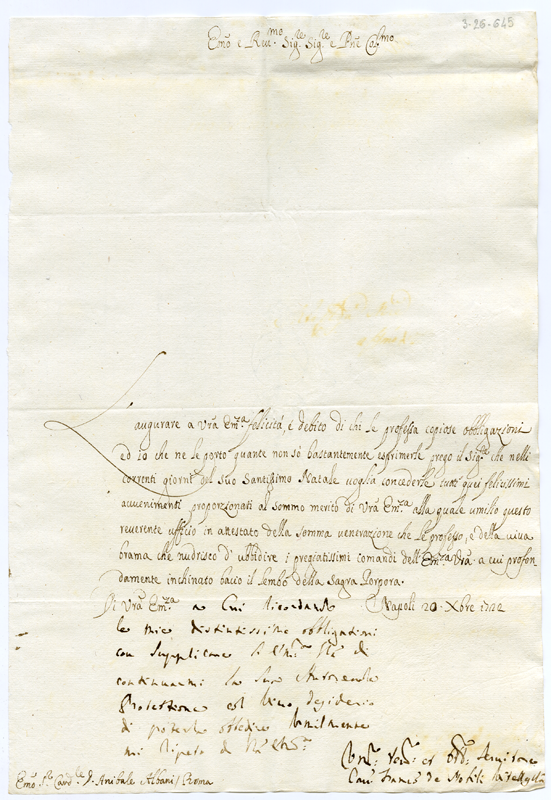 3-26-645
Em.o e Reu.mo Sig.re Sig.re e Pne Col.mo
L'augurare a Vrã Em.za felicità, è debito di chi le professa copiose obbligazioni
ed io che ne le porto quante non sò bastantemente esprimerle prego il Sig.re che nelli
correnti giorni del suo Santissimo Natale voglia concederle tutti quei felicissimi
auuenimenti proporzionati al sommo merito di Vrã Em.za alla quale umilio questo
reuerente ufficio in attestato della somma uenerazione che le professo, e della uiua
brama che nudrisco d'ubbidire i pregiatissimi comandi dell'Em.za Vrã a cui profon
damente inchinato bacio il lembo della Sagra Porpora.
Di Vrã Em.za a Cui Ricordando
Napoli 20 Xbre 1722
le mie distintissime obbligationi
con supplicare di
continuarmi la Sua
Protettione col vivo desiderio
di poterla obbedire umilmente
mi Ripeto di
Seruitore
de Nobili
Em.o S.r Card.le D. Anibale Albani / Roma